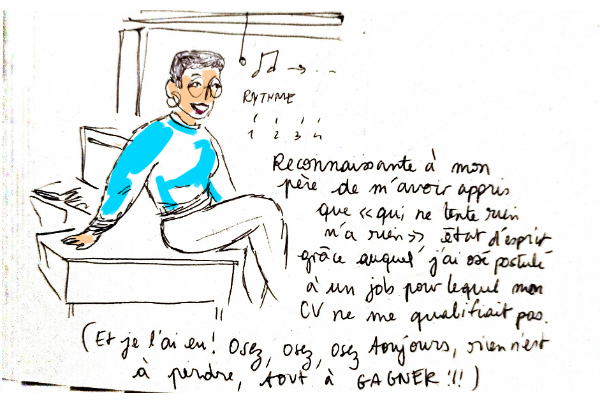 RYTHME
1 2 3 4
Reconnaissante à mon
père de m'avoir appris
que «qui ne tente rien
n'a rien» état d'esprit
grâce auquel j'ai osé postulé
à un job pour lequel mon
CV ne me qualifiait pas.
(Et je l'ai eu! Osez, osez, osez toujours, rien n'est
à perdre, tout à GAGNER!!!)